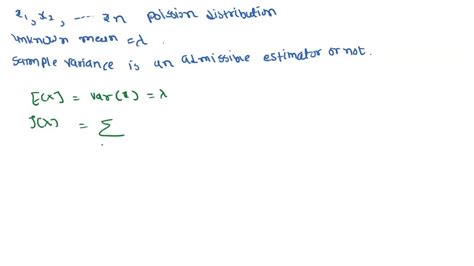 x1, x2, ---- xn poission distribution
unknown mean = λ .
sample variance is an admissible estimator or not.
E(x) = var(x) = λ
f(x) = Σ